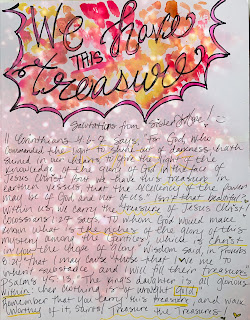 We have
THIS
treasure
Salutations from
II Corinthians 4:6-7 says, For God, who
commanded the light to shine out of darkness hath
shined in our hearts to give the light of the
knowledge of the glory of God in the face of
Jesus Christ. But we have this treasure in
earthen vessels, that the excellency of the power
may be of God and not of us. Isn't that beautiful?
Within us all carries the treasure of Jesus Christ!
Colossians 1:27 says, To whom God would make
known what is the riches of the glory of this
mystery among the Gentiles; which is Christ
in you, the hope of glory. Wisdom said, in Proverbs
That I may cause those that love me to
inherit substance and I will fill their treasures.
Psalms 45:13. The king's daughter is all glorious
within: her clothing is of wrought gold.
Remember that you carry this treasure, and walk
worthy of it, Treasure the Treasures!